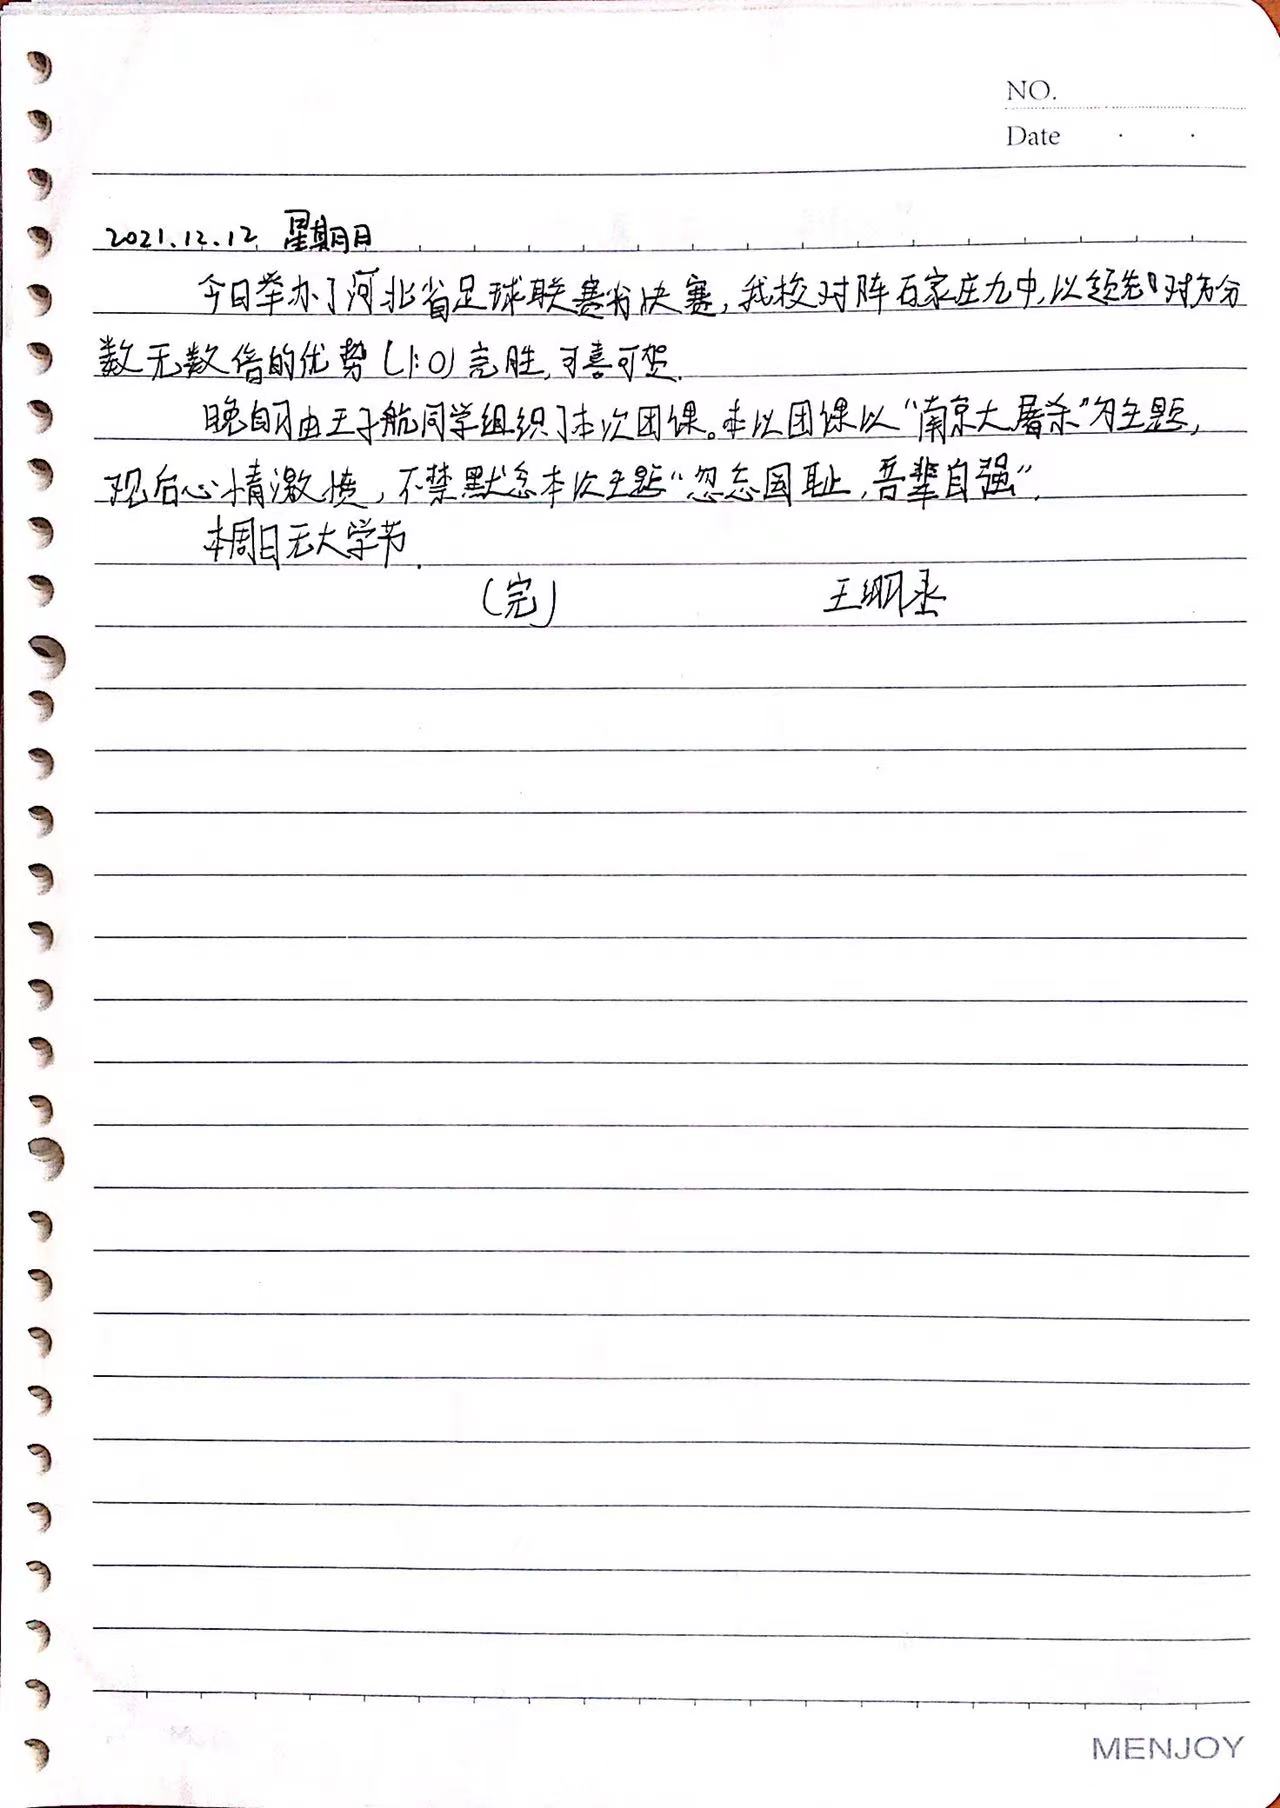 NO.
Date
2021.12.12 星期日
今日举办了河北省足球联赛省决赛,我校对阵石家庄九中,以领先对方分
数无数倍的优势(1:0)完胜,可喜可贺.
晚自习由王子航同学组织了本次团课。本次团课以“南京大屠杀”为主题,
观后心情激愤,不禁默念本次主题“忽忘国耻,吾辈自强”.
本周日无大学节.
(完) 王
MENJOY